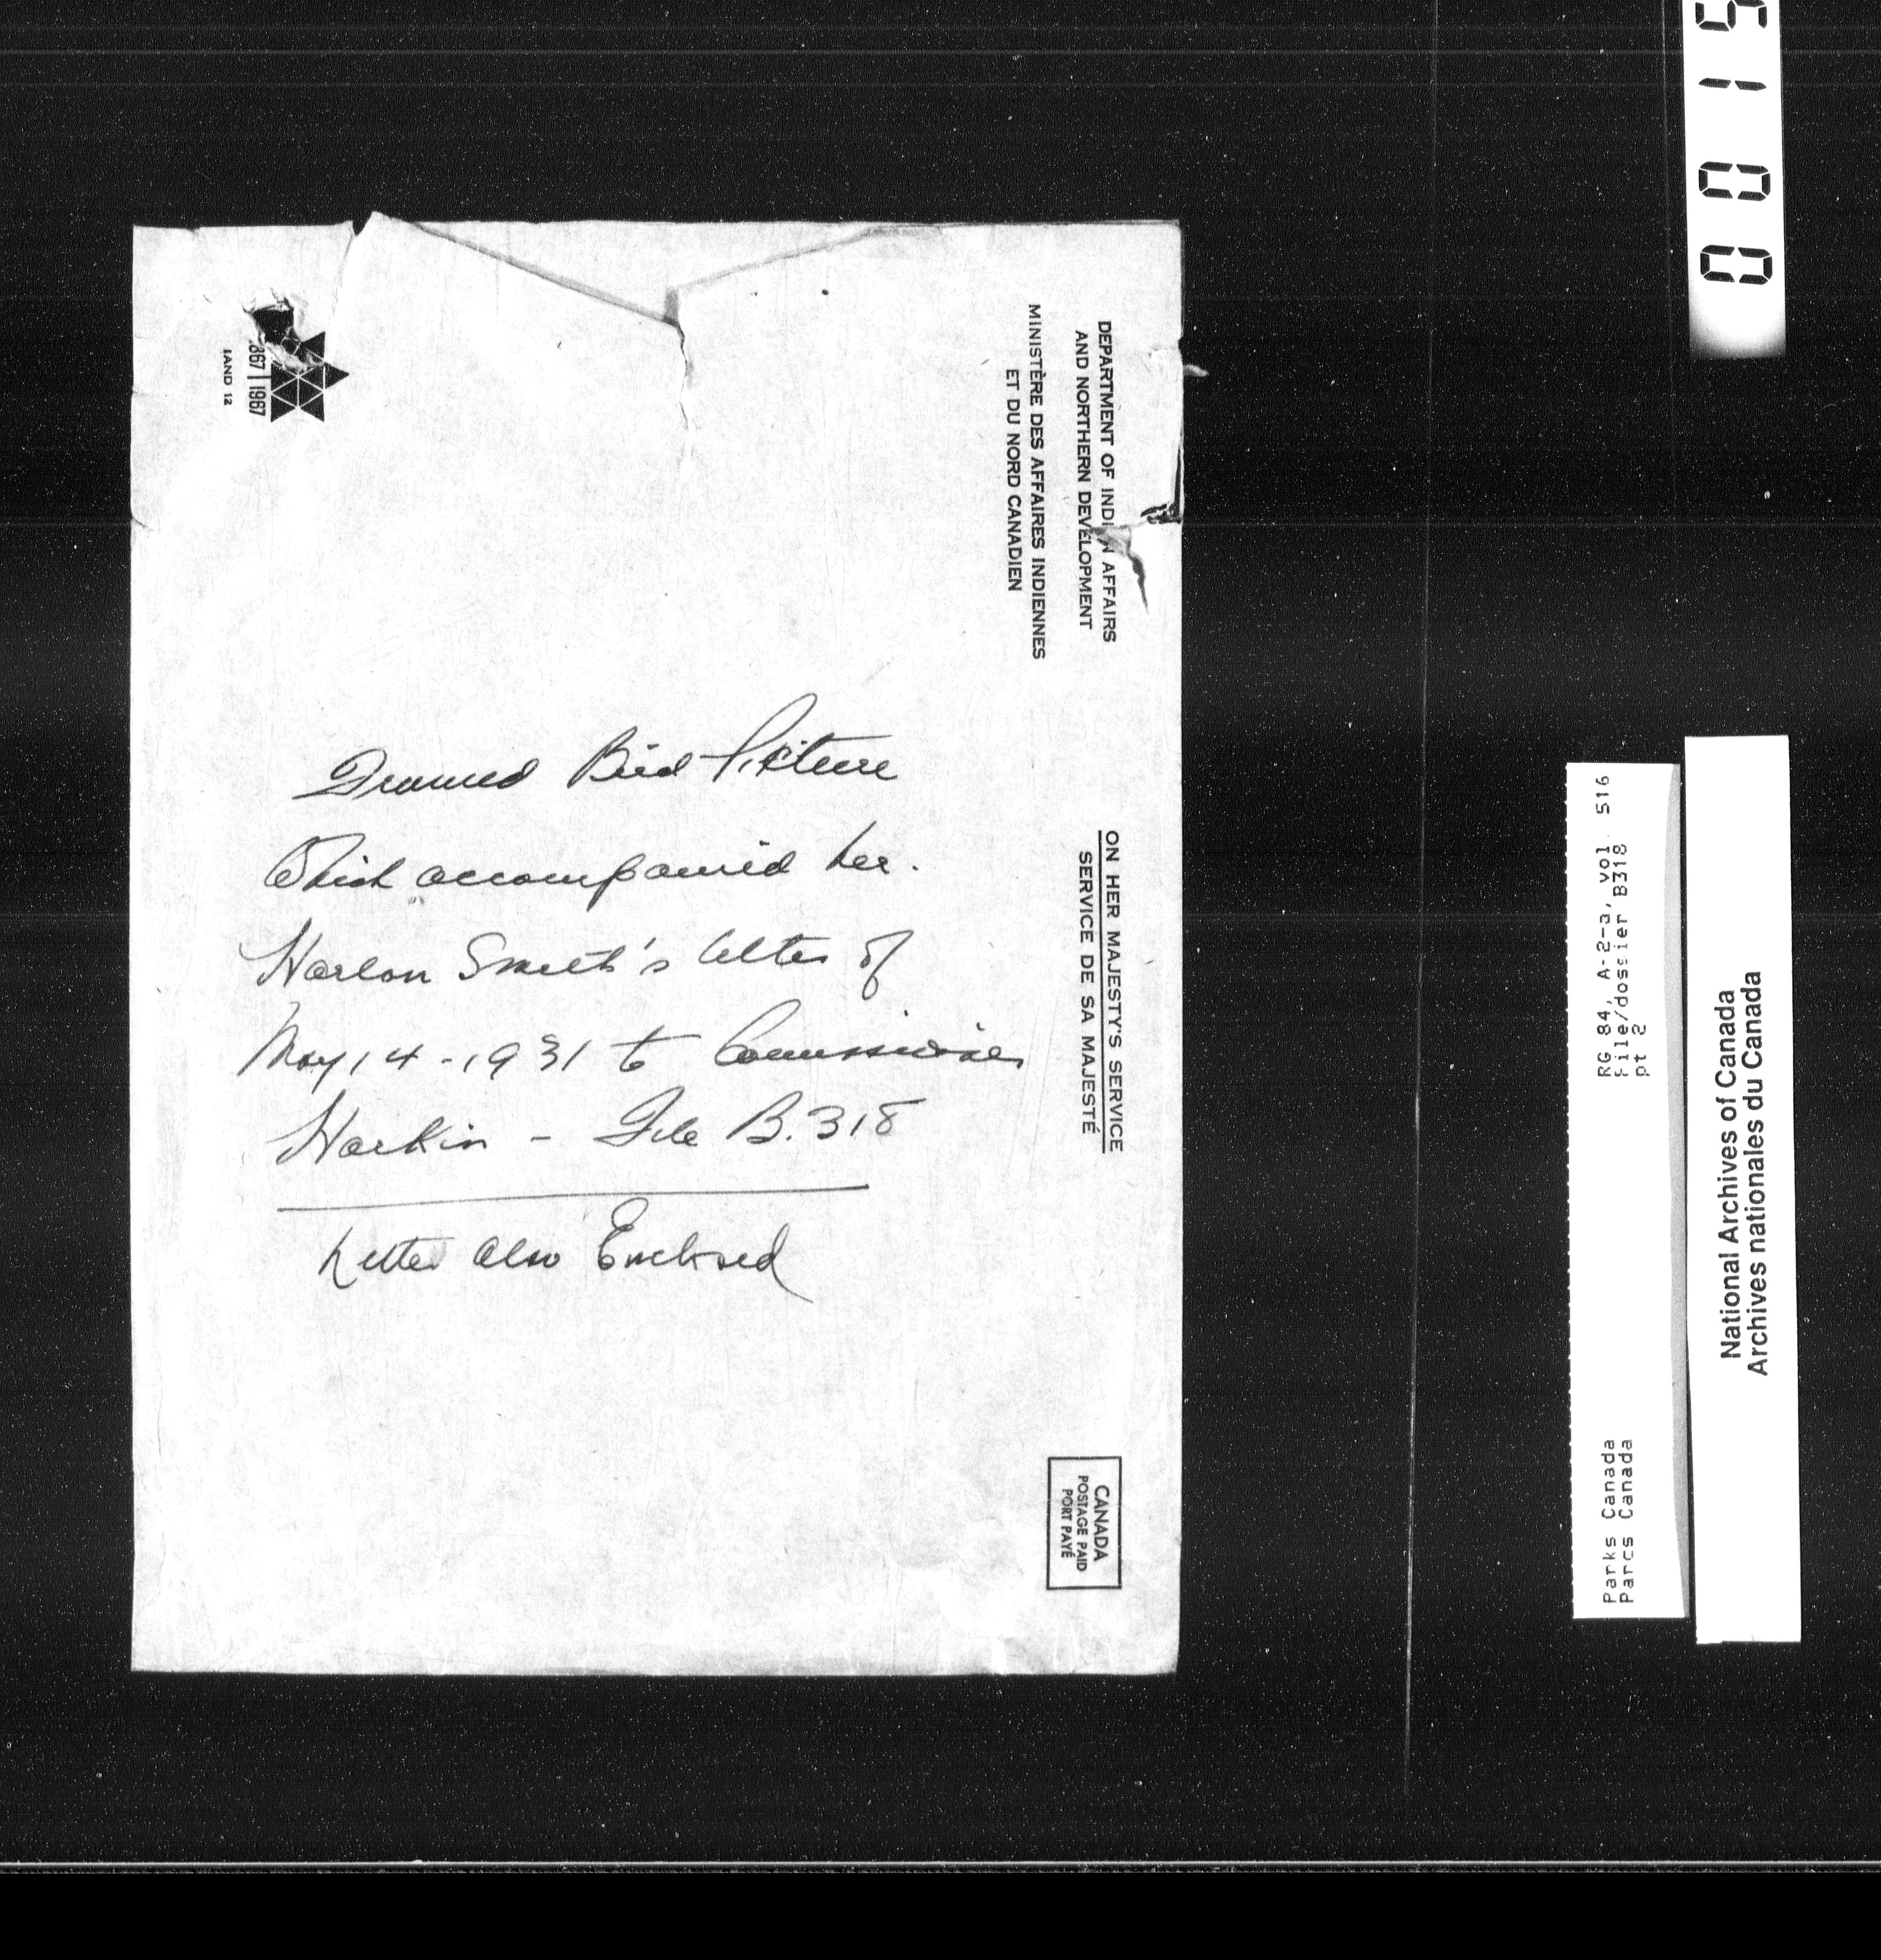 DEPARTMENT OF INDIAN AFFAIRS
AND NORTHERN DEVELOPMENT
MINISTÈRE DES AFFAIRES INDIENNES
ET DU NORD CANADIEN
ON HER MAJESTY'S SERVICE
SERVICE DE SA MAJESTÉ
CANADA
POSTAGE PAID
PORT PAYÉ
867 | 1967
IAND 12
Framed Bird Picture
Which accompanied
Harlan Smith's letter of
May 14 - 1931 to Commissioner
Harkin - File B.318
Letter also Enclosed
0015
RG 84, A-2-a, vol. 516
File/dossier B318
pt 2
Parks Canada
Parcs Canada
National Archives of Canada
Archives nationales du Canada